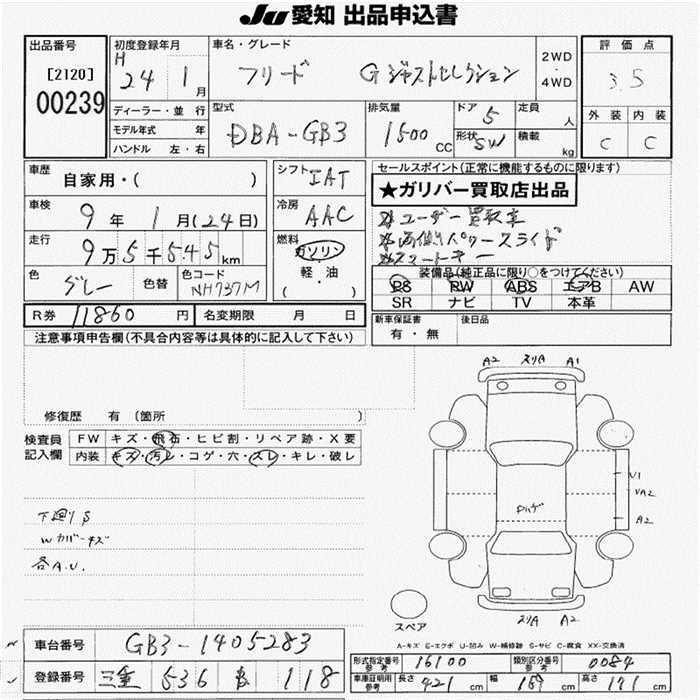 JU 愛知 出品申込書
出品番号 [2120] 00239
初度登録年月 H 24 年 1 月
ディーラー・並行
モデル年式 年
ハンドル 左・右
車名・グレード フリード Gジャストセレクション
2WD・4WD
型式 DBA-GB3
排気量 1500 CC
ドア 5
形状 SW
定員 人
積載 kg
評価点 3.5
外装 C 内装 C
車歴 自家用・( )
車検 9年 1月(24日)
走行 9万5千545km
色 グレー 色替
色コード NH737M
シフト IAT
冷房 AAC
燃料 ガソリン 軽・油 ( )
R券 11860 円 名変期限 月 日
セールスポイント(正常に機能するものに限ります)
★ガリバー買取店出品
☆ユーザー買取車
☆両側パワースライド
☆スマートキー
装備品(純正品に限り○をつけてください)
PS PW ABS エアB AW
SR ナビ TV 本革
新車保証書 有・無 後日品
注意事項申告欄(不具合内容等は具体的に記入して下さい)
修復歴 有 (箇所 )
検査員記入欄
FW キズ・飛石・ヒビ割・リペア跡・X要
内装 キズ・汚レ・コゲ・穴・スレ・キレ・破レ
下廻りS
Wカバーキズ
各A.U.
A2 スリA A1
U1
UA2
A2
Dハゲ
スリA A2
スペア
A-キズ E-エクボ U-凹み W-補修跡 S-サビ C-腐食 XX-交換済
車台番号 GB3-1405283
登録番号 三重 536 118
形式指定番号 参考 16100 類別区分番号 参考 0084
車庫証明用 参考 長さ 421 cm 幅 169 cm 高さ 171 cm